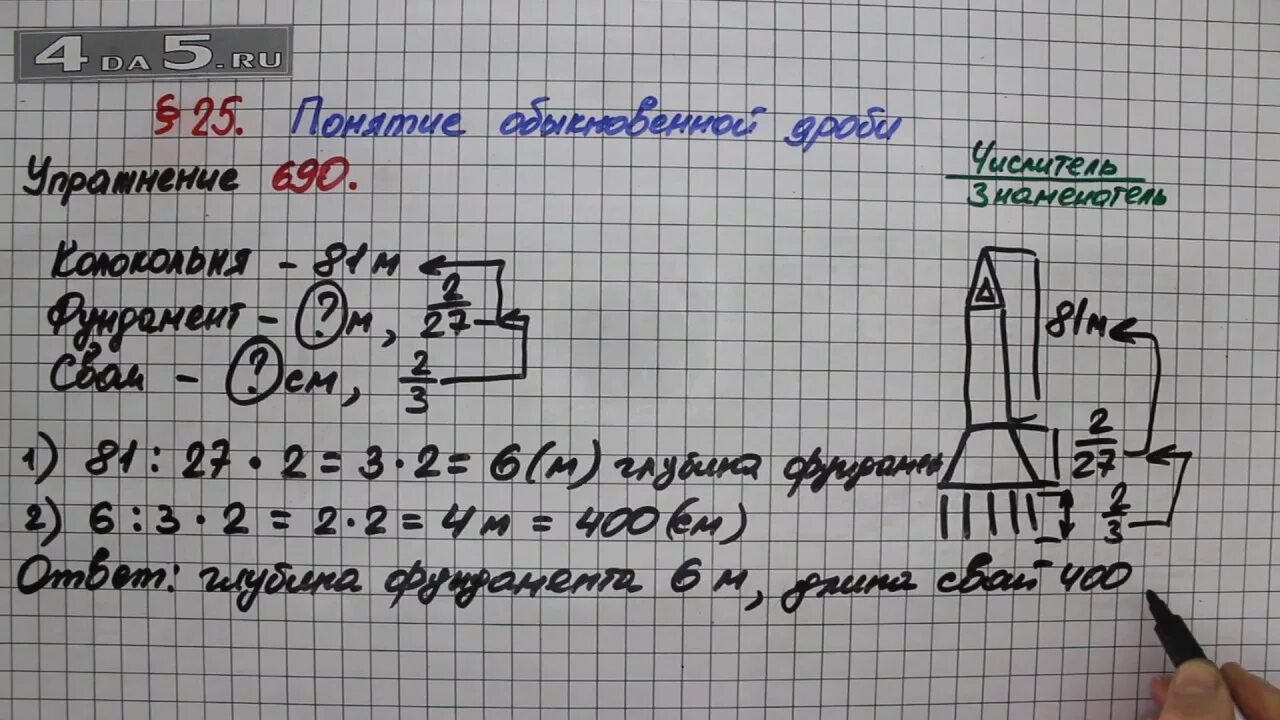 4DA5.RU
§ 25. Понятие обыкновенной дроби
Упражнение 690.
Числитель
Знаменатель
Колокольня - 81 м
Фундамент - ? м, 2/27
Сваи - ? см, 2/3
81м
2/27
2/3
1) 81 : 27 · 2 = 3 · 2 = 6 (м) глубина фундамен
2) 6 : 3 · 2 = 2 · 2 = 4 м = 400 (см)
Ответ: глубина фундамента 6 м, длина свай 400